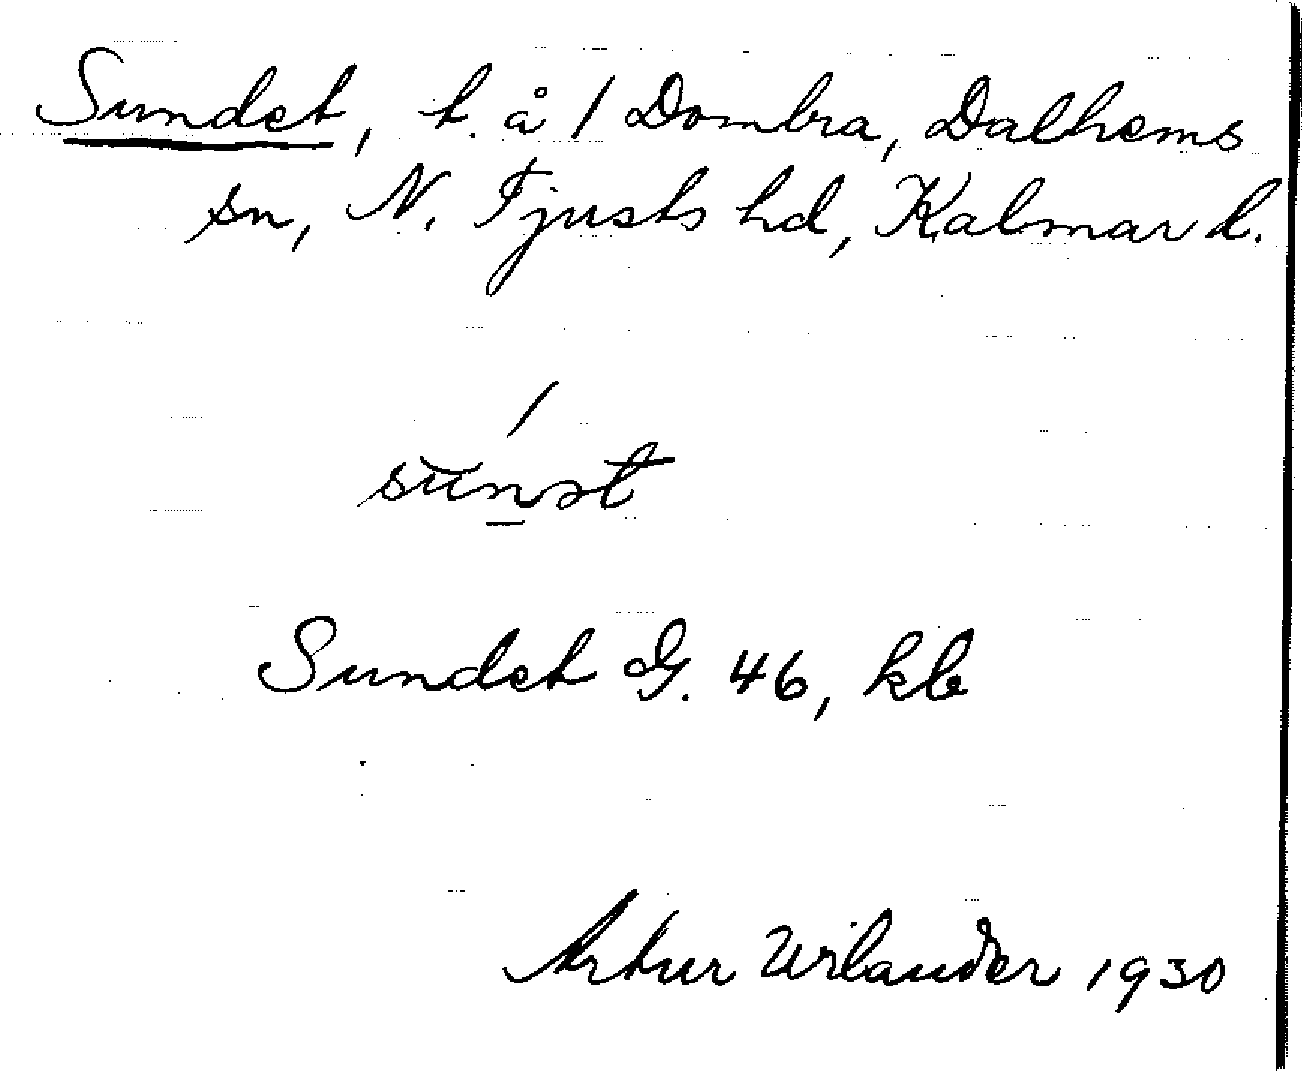 Sundet, t. å 1 Dombra, Dalhems
sn, N. Tjusts hd, Kalmar l.
Sundet G. 46, kb
Artur Wilander 1930